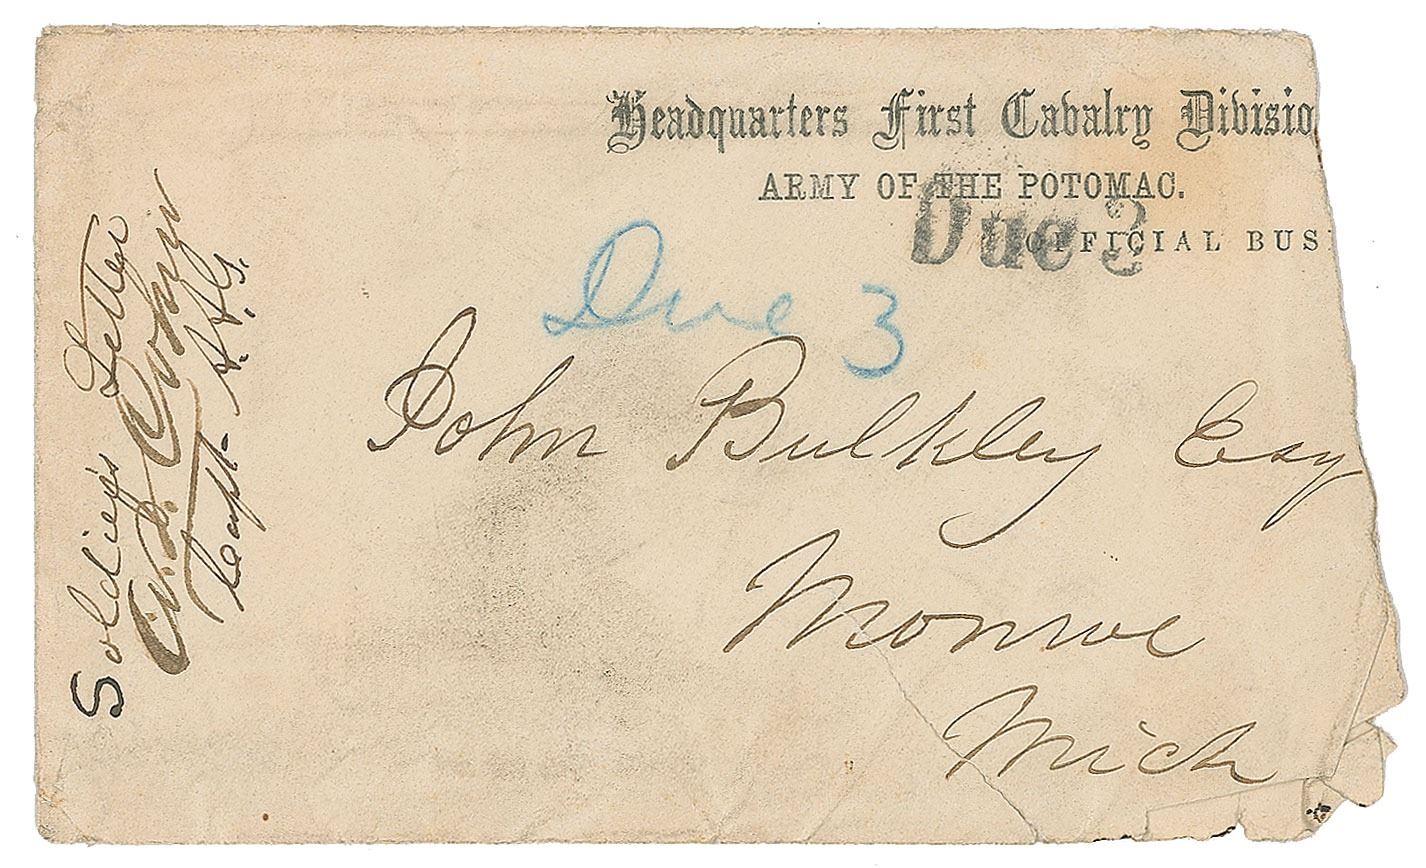 Headquarters First Cavalry Divisio
ARMY OF THE POTOMAC.
OFFICIAL BUSI
Due 3
Due 3
John Bulkley Esq
Monroe
Mich
Soldier's Letter
Capt. A.A.G.